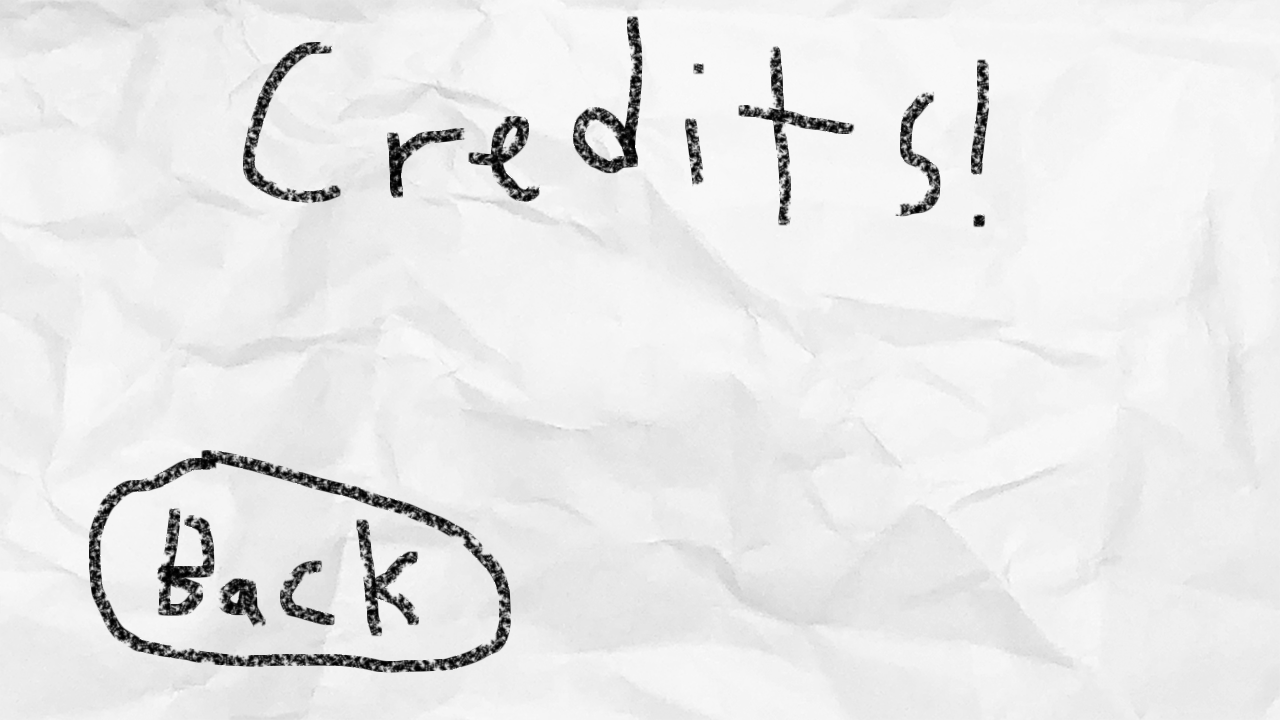 Credits!
Back